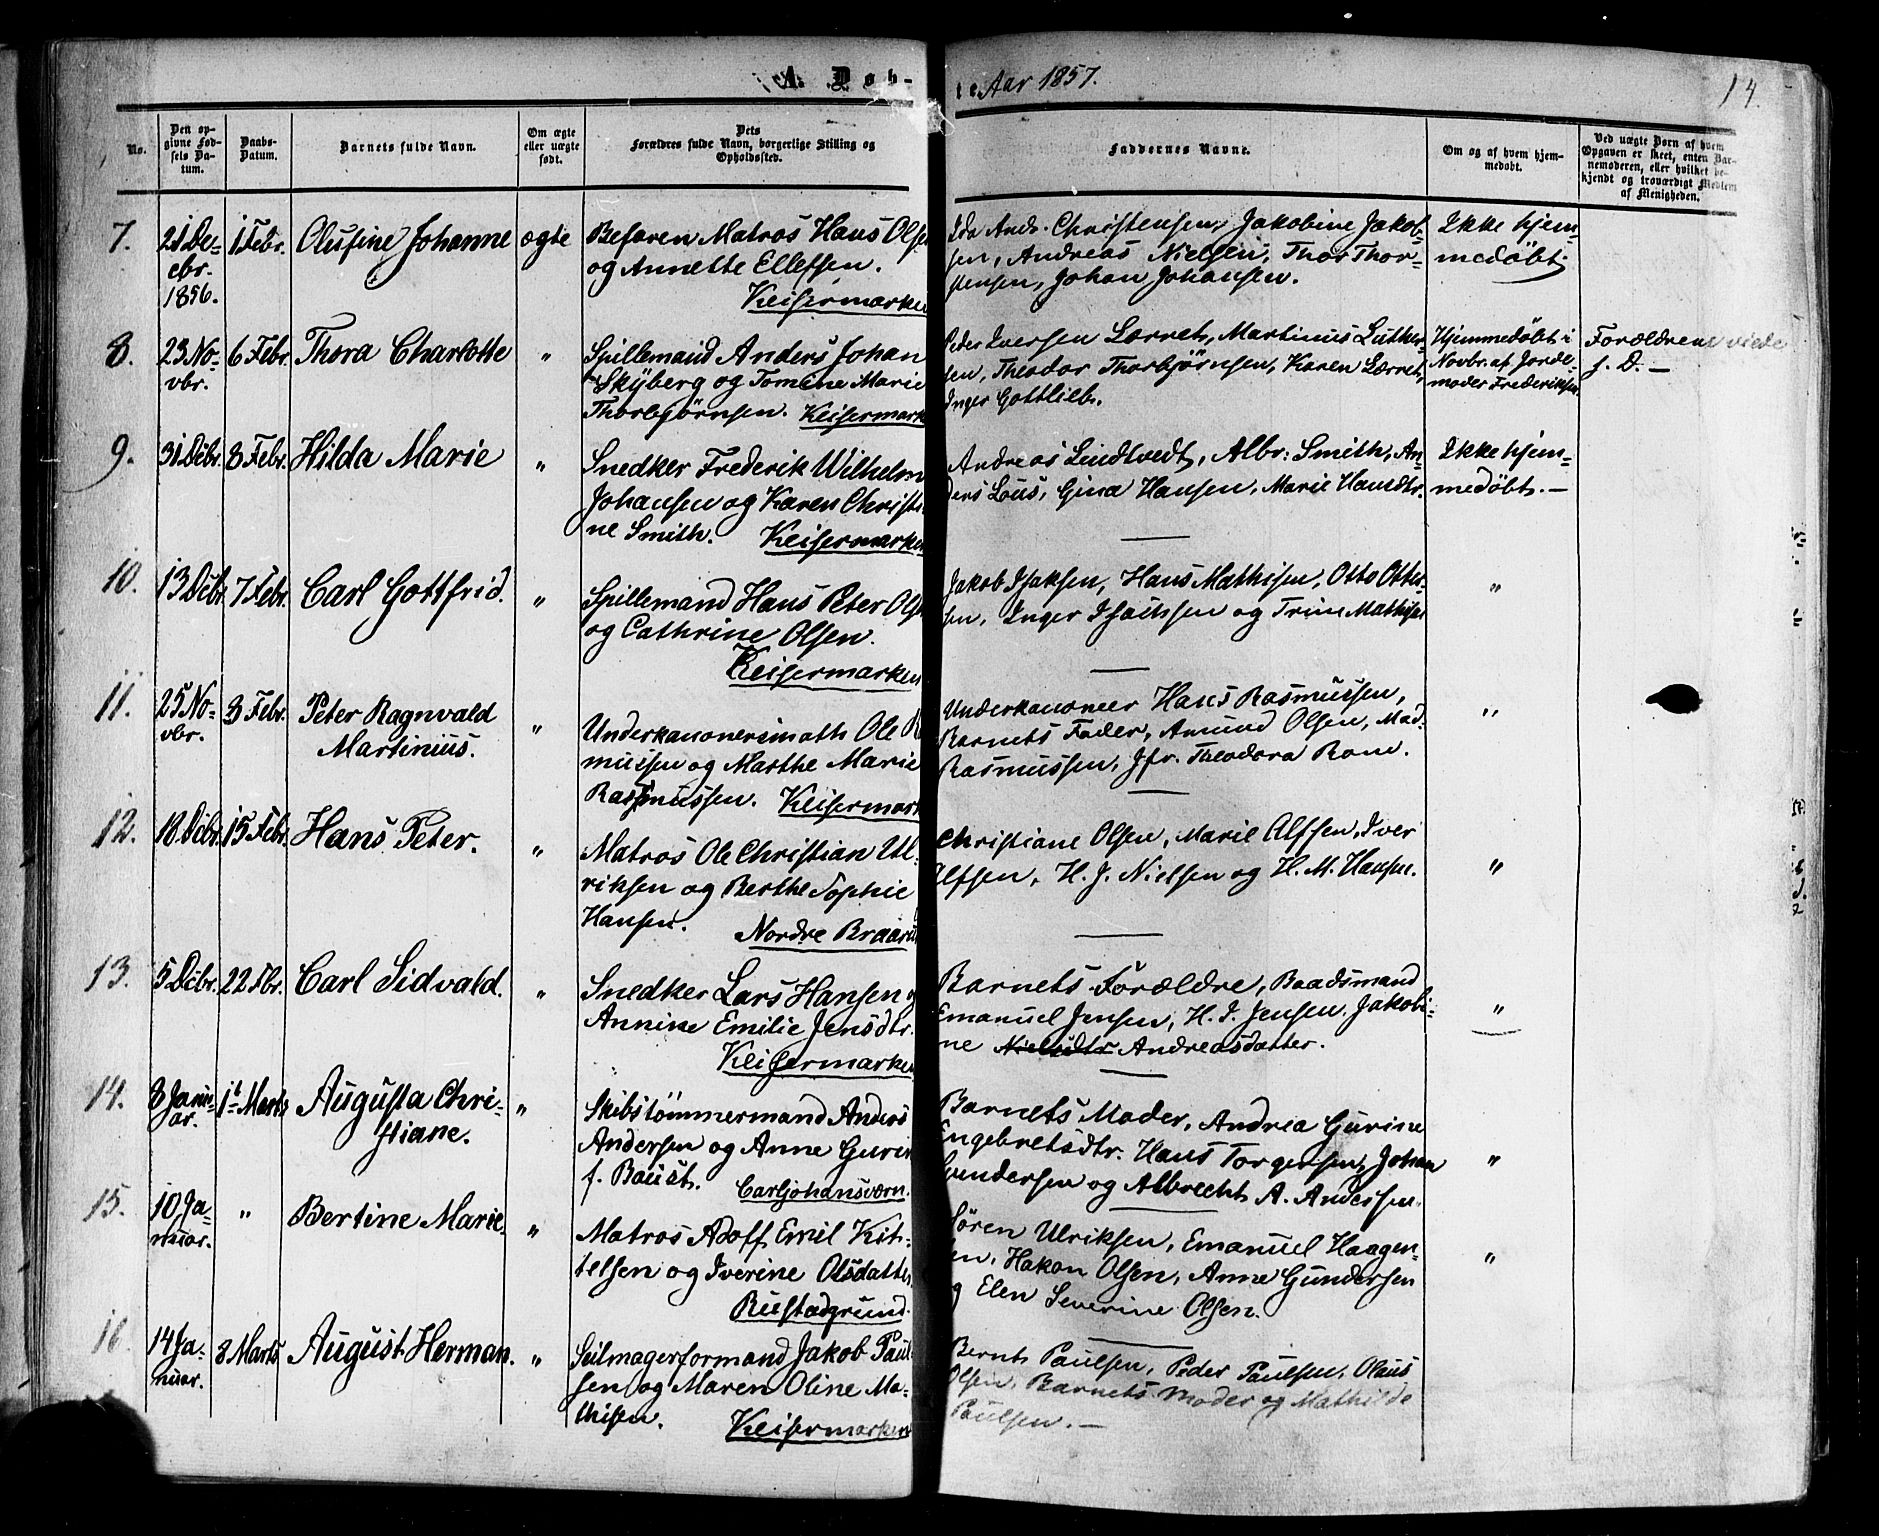 A. Døb-
te Aar 1857.
14.
No.
Den op-
givne Fød-
sels Da-
tum.
Daabs-
Datum.
Barnets fulde Navn.
Om ægte
eller uægte
født.
Dets
Forældres fulde Navn, borgerlige Stilling og
Opholdssted.
Faddernes Navne.
Om og af hvem hjem-
medøbt.
Ved uægte Børn af hvem
Opgaven er skeet, enten Bar-
nemoderen, eller hvilket be-
kjendt og troværdigt Medlem
af Menigheden.
7.
21 De-
cbr.
1856.
1 Febr.
Olufine Johanne
ægte
Befaren Matros Hans Olsen
og Annette Ellefsen.
Keisermarken
Ida Andr. Christensen, Jakobine Jakob-
sen, Andreas Nielsen, Thor Thor-
stensen, Johan Johansen.
Ikke hjem-
medøbt.
8.
23 No-
vbr.
6 Febr.
Thora Charlotte
"
Spillemand Anders Johan
Skyberg og Tomine Marie
Thorbjørnsen. Keisermark
Peder Iversen Lærret, Martinus Luther-
sen, Theodor Thorbjørnsen, Karen Lærret,
Inger Gottlieb.
Hjemmedøbt i
Novbr. af Jorde-
moder Frederiksen
Forældrene viede
f. D. —
9.
31 Dcbr.
8 Febr.
Hilda Marie
"
Snedker Frederik Wilhelm
Johansen og Karen Christi
ne Smith. Keisermarken
Andreas Lindtvedt, Albr: Smith, An-
ders Lous, Gina Hansen, Marie Hansdtr.
Ikke hjem-
medøbt. —
10.
13 Dcbr.
7 Febr.
Carl Gottfrid.
"
Spillemand Hans Peter Olsen
og Cathrine Olsen.
Keisermarken
Jakob Isaksen, Hans Mathisen, Otto Otter-
sen, Inger Isachsen og Trine Mathisen
"
11.
25 No-
vbr.
8 Febr.
Peter Ragnvald
Martinius.
"
Underkanonersmath Ole R
mussen og Marthe Marie
Rasmussen. Keisermark
Underkanoneer Hans Rasmussen,
Barnets Fader, Amund Olsen, Mad.
Rasmussen, Jfr. Theodora Rom.
"
12.
18 Dcbr.
15 Febr.
Hans Peter.
"
Matros Ole Christian Ul-
riksen og Berthe Sophie
Hansen.
Nordre Braar
Christiane Olsen, Marie Alfsen, Iver
Alfsen, H. J. Nielsen og H. M. Hansen.
"
13.
5 Dcbr.
22 Fbr.
Carl Sidvald.
"
Snedker Lars Hansen o
Annine Emilie Jensdtr.
Keisermarken
Barnets Forældre, Baadsmand
Emanuel Jensen, H. J. Jensen, Jakobi-
ne Nielsdtr Andreasdatter.
"
14.
8 Janu-
ar.
1t Marts
Augusta Chri-
stiane.
"
Skibstømmermand Anders
Andersen og Anne Gurin
f. Baust. Carljohansværn.
Barnets Moder, Andrea Gurine
Engebretsdtr. Hans Torgersen, Johan
Gundersen og Albrecht A. Andersen.
"
15.
10 Ja-
nuar.
"
Bertine Marie
"
Matros Adolf Emil Kit-
telsen og Iverine Olsdatter
Rustadgrund.
Søren Ulriksen, Emanuel Haagen-
sen, Hakon Olsen, Anne Gundersen
og Elen Severine Olsen.
"
16
14 Ja-
nuar.
8 Marts
August Herman.
"
Seilmagerformand Jakob Paul-
sen og Maren Oline Ma-
thisen.
Keisermarken
Bernt Paulsen, Peder Paulsen, Olaus
Olsen, Barnets Moder og Mathilde
Paulsen. —